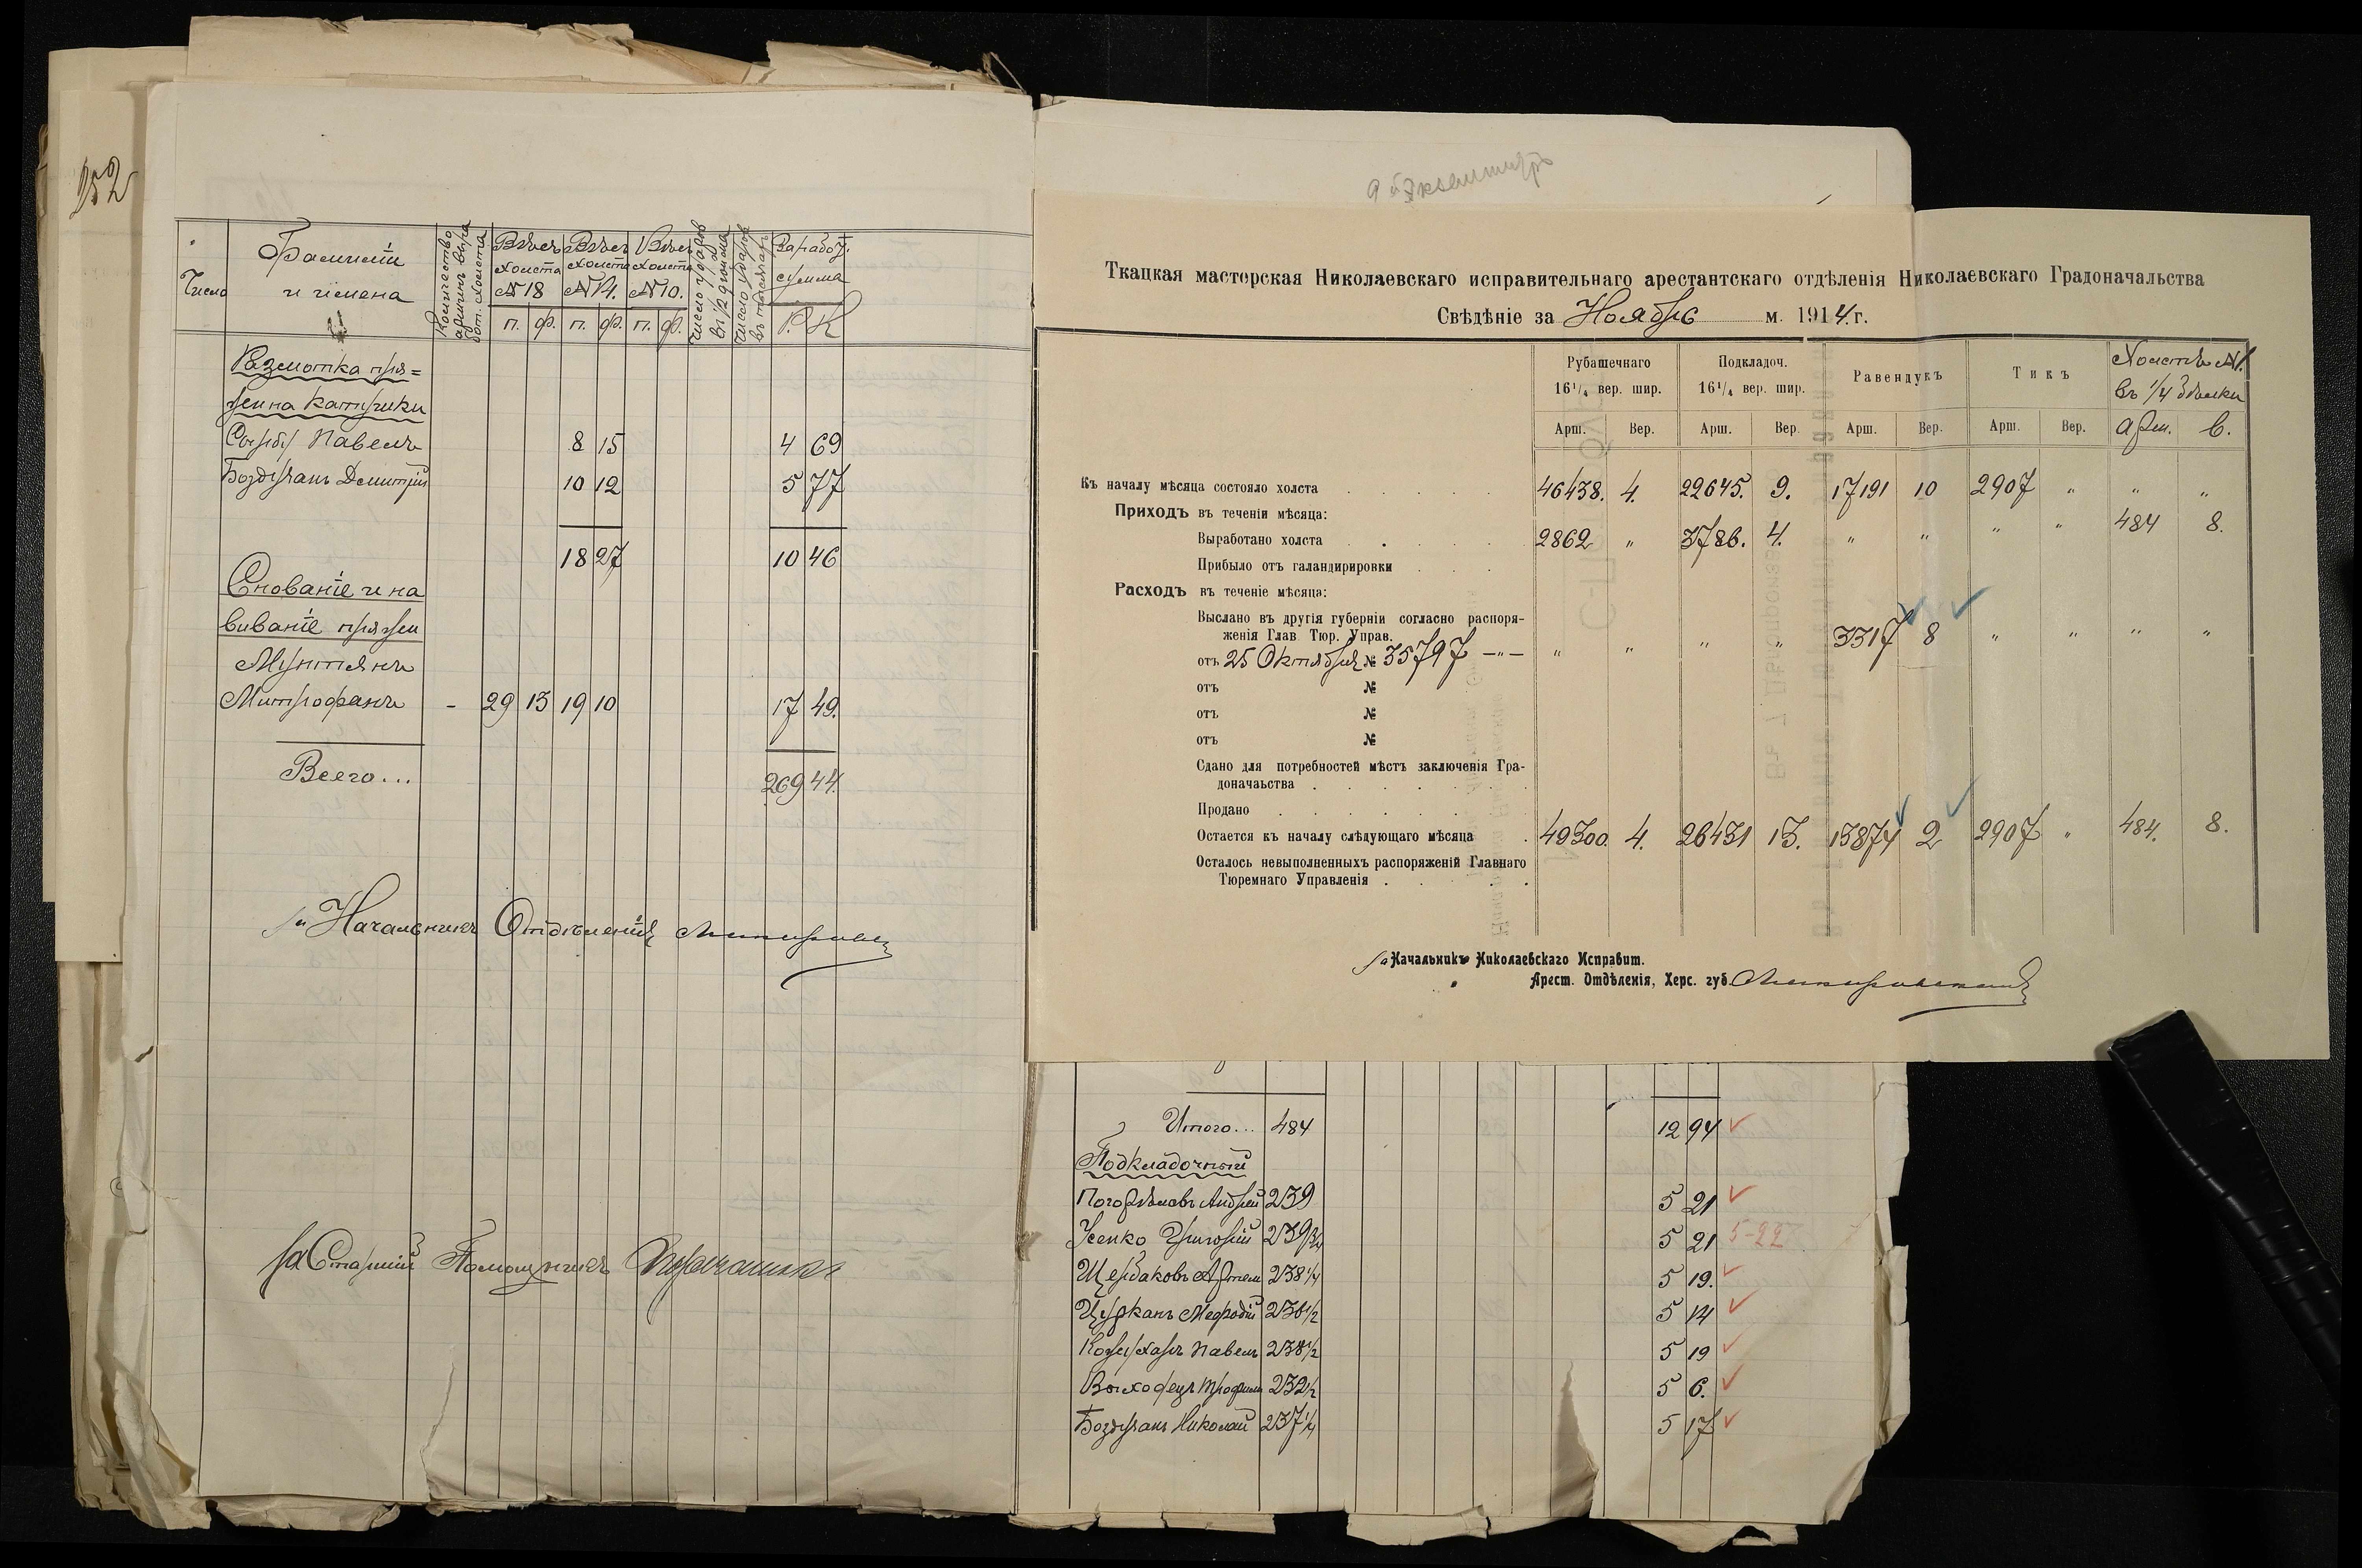 252
Число
Фамиліи
и имена
Количество
аршинъ выра
бот. холста
Вѣсъ
холста
№ 18
Вѣсъ
холста
№ 14.
Вѣсъ
холста
№ 10.
Число ударовъ
въ 1/2 дюйма
Число ударовъ
въ тысячахъ
Заработ.
сумма
п. ф. п. ф. п. ф. Р. К
Размотка пря=
жи на катушки
Сырбу Павелъ 8 15 4 69
Боздуганъ Дмитрій 10 12 5 77
18 27 10 46
Снованіе и на
виваніе пряжи
Мунтянъ
Митрофанъ - 29 13 19 10 17 49.
Всего... 269 44.
За Начальникъ Отдѣленія
За Старшій Помощникъ
Ткацкая мастерская Николаевскаго исправительнаго арестантскаго отдѣленія Николаевскаго Градоначальства
Свѣдѣніе за Ноябрь м. 1914 г.
Рубашечнаго
16¹/₄ вер. шир.
Подкладоч.
16¹/₄ вер. шир.
Равендукъ
Тикъ
Холстъ №1.
въ 1/4 бѣлки
Арш. Вер. Арш. Вер. Арш. Вер. Арш. Вер. арш. в.
Къ началу мѣсяца состояло холста 46438. 4. 22645. 9. 17191 10 2907 " " "
Приходъ въ теченіи мѣсяца:
Выработано холста 2862 " 3786. 4. " " " " 484 8.
Прибыло отъ галандирировки
Расходъ въ теченіе мѣсяца:
Выслано въ другія губерніи согласно распоря-
женія Глав. Тюр. Управ.
отъ 25 Октября № 35797 —"— " " " " 3317 8 " " " "
отъ №
отъ №
отъ №
Сдано для потребностей мѣстъ заключенія Гра-
доначаьства
Продано
Остается къ началу слѣдующаго мѣсяца 49300. 4. 26431 13. 13874 2 2907 " 484. 8.
Осталось невыполненныхъ распоряженій Главнаго
Тюремнаго Управленія
За Начальникъ Николаевскаго Исправит.
Арест. Отдѣленія, Херс. губ.
Итого... 484 12 94
Подкладочный
Погорѣловъ Андрей 239 5 21
Усенко Григорій 239 3/4 5 21 5-22
Щербаковъ Артем 238 1/4 5 19.
Цурканъ Мефодій 236 1/2 5 14
Кожухарь Павелъ 238 1/2 5 19
Выходецъ Трофимъ 232 1/2 5 6.
Боздуганъ Николай 237 1/4 5 17